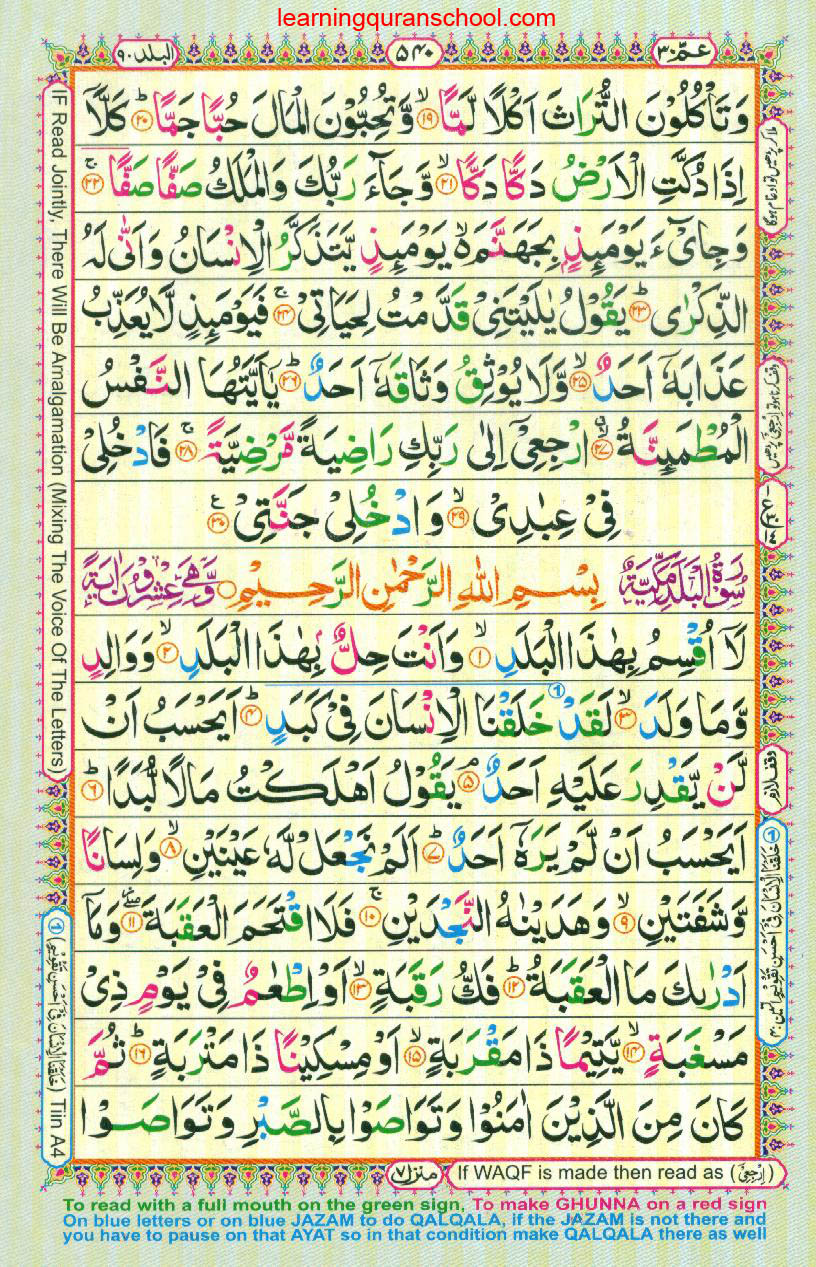 learningquranschool.com
عـمّ ٣٠
۵۴۰
البلد ٩٠
وَتَاْكُلُوْنَ التُّرَاثَ اَكْلًا لَّمًّا ۙ﴿۱۹﴾ وَّتُحِبُّوْنَ الْمَالَ حُبًّا جَمًّا ؕ﴿۲۰﴾ كَلَّاۤ
اِذَا دُكَّتِ الْاَرْضُ دَكًّا دَكًّا ۙ﴿۲۱﴾ وَّجَآءَ رَبُّكَ وَالْمَلَكُ صَفًّا صَفًّا ۚ﴿۲۲﴾
وَجِایْٓءَ یَوْمَىِٕذٍۭ بِجَهَنَّمَ ۙ۬ یَوْمَىِٕذٍ یَّتَذَكَّرُ الْاِنْسَانُ وَاَنّٰی لَهُ
الذِّكْرٰی ؕ﴿۲۳﴾ یَقُوْلُ یٰلَیْتَنِیْ قَدَّمْتُ لِحَیَاتِیْ ۚ﴿۲۴﴾ فَیَوْمَىِٕذٍ لَّا یُعَذِّبُ
عَذَابَهٗۤ اَحَدٌ ۙ﴿۲۵﴾ وَّلَا یُوْثِقُ وَثَاقَهٗۤ اَحَدٌ ؕ﴿۲۶﴾ یٰۤاَیَّتُهَا النَّفْسُ
الْمُطْمَىِٕنَّةُ ۗۖ﴿۲۷﴾ ارْجِعِیْۤ اِلٰی رَبِّكِ رَاضِیَةً مَّرْضِیَّةً ۚ﴿۲۸﴾ فَادْخُلِیْ
فِیْ عِبٰدِیْ ۙ﴿۲۹﴾ وَادْخُلِیْ جَنَّتِیْ ﴿۳۰﴾ع
سُوْرَةُ الْبَلَدِ مَكِّیَّةٌ بِسْمِ اللّٰهِ الرَّحْمٰنِ الرَّحِیْمِ وَّهِیَ عِشْرُوْنَ اٰیَةً
لَاۤ اُقْسِمُ بِهٰذَا الْبَلَدِ ۙ﴿۱﴾ وَاَنْتَ حِلٌّۢ بِهٰذَا الْبَلَدِ ۙ﴿۲﴾ وَوَالِدٍ
وَّمَا وَلَدَ ۙ﴿۳﴾ لَقَدْ خَلَقْنَا الْاِنْسَانَ فِیْ كَبَدٍ ؕ﴿۴﴾ اَیَحْسَبُ اَنْ
لَّنْ یَّقْدِرَ عَلَیْهِ اَحَدٌ ۘ﴿۵﴾ یَقُوْلُ اَهْلَكْتُ مَالًا لُّبَدًا ؕ﴿۶﴾
اَیَحْسَبُ اَنْ لَّمْ یَرَهٗۤ اَحَدٌ ؕ﴿۷﴾ اَلَمْ نَجْعَلْ لَّهٗ عَیْنَیْنِ ۙ﴿۸﴾ وَلِسَانًا
وَّشَفَتَیْنِ ۙ﴿۹﴾ وَهَدَیْنٰهُ النَّجْدَیْنِ ۚ﴿۱۰﴾ فَلَا اقْتَحَمَ الْعَقَبَةَ ۖ﴿۱۱﴾ وَمَاۤ
اَدْرٰىكَ مَا الْعَقَبَةُ ؕ﴿۱۲﴾ فَكُّ رَقَبَةٍ ۙ﴿۱۳﴾ اَوْ اِطْعٰمٌ فِیْ یَوْمٍ ذِیْ
مَسْغَبَةٍ ۙ﴿۱۴﴾ یَّتِیْمًا ذَا مَقْرَبَةٍ ۙ﴿۱۵﴾ اَوْ مِسْكِیْنًا ذَا مَتْرَبَةٍ ؕ﴿۱۶﴾ ثُمَّ
كَانَ مِنَ الَّذِیْنَ اٰمَنُوْا وَتَوَاصَوْا بِالصَّبْرِ وَتَوَاصَوْا
IF Read Jointly, There Will Be Amalgamation (Mixing The Voice Of The Letters)
① (خَلَقْنَا الْاِنْسَانَ فِیْۤ اَحْسَنِ تَقْوِیْمٍ) Tiin A4
وقف لازم
① خَلَقْنَا الْاِنْسَانَ فِیْۤ اَحْسَنِ تَقْوِیْمٍ
منزل ۷
If WAQF is made then read as (اِرْجِعِیْ)
To read with a full mouth on the green sign, To make GHUNNA on a red sign
On blue letters or on blue JAZAM to do QALQALA, if the JAZAM is not there and
you have to pause on that AYAT so in that condition make QALQALA there as well